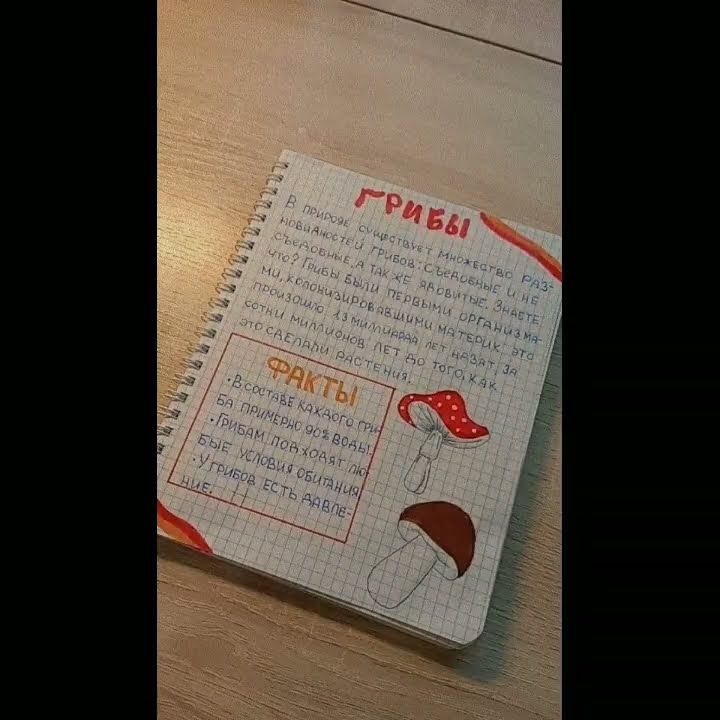 ГРИБЫ
В ПРИРОДЕ СУЩЕСТВУЕТ МНОЖЕСТВО РАЗ-
НОВИДНОСТЕЙ ГРИБОВ: СЪЕДОБНЫЕ И НЕ
СЪЕДОБНЫЕ, А ТАК ЖЕ ЯДОВИТЫЕ. ЗНАЕТЕ
ЧТО? ГРИБЫ БЫЛИ ПЕРВЫМИ ОРГАНИЗМА-
МИ, КОЛОНИЗИРОВАВШИМИ МАТЕРИК. ЭТО
ПРОИЗОШЛО 1.3 МИЛЛИАРДА ЛЕТ НАЗАД, ЗА
СОТНИ МИЛЛИОНОВ ЛЕТ ДО ТОГО, КАК
ЭТО СДЕЛАЛИ РАСТЕНИЯ.
ФАКТЫ
• В СОСТАВЕ КАЖДОГО ГРИ-
БА ПРИМЕРНО 90% ВОДЫ.
• ГРИБАМ ПОДХОДЯТ ЛЮ-
БЫЕ УСЛОВИЯ ОБИТАНИЯ
• У ГРИБОВ ЕСТЬ ДАВЛЕ-
НИЕ.